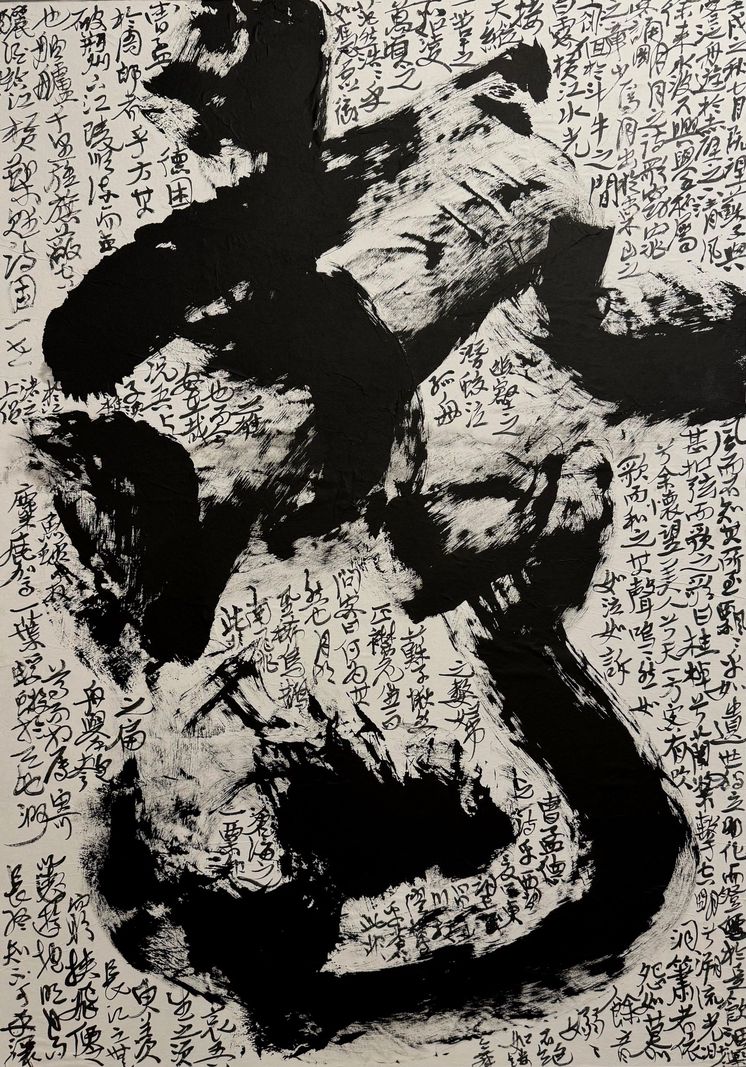 壬戌之秋七月既望蘇子與
客泛舟遊於赤壁之下清風
徐來水波不興舉酒屬客
誦明月之詩歌窈窕
之章少焉月出於東山之
徘徊於斗牛之間
白露橫江水光
接
天縱
一葦之
所如凌
萬頃之
茫然浩浩乎
如馮虛御
風而不知其所止飄飄乎如遺世獨立羽化而登
甚扣舷而歌之歌曰桂棹兮蘭槳擊空明兮溯流光
兮余懷望美人兮天一方客有吹
洞簫者依
歌而和之其聲嗚嗚然如
怨如慕
如泣如訴
餘音
嫋嫋
不絕
如縷
舞
幽壑之
潛蛟泣
孤舟
之嫠婦
蘇子愀然
正襟危坐而
問客曰何為其
然也月明
星稀烏鵲
南飛
此
曹孟德
之詩乎西望
夏口東
山川
此非
曹孟
德困
於周郎者乎方其
破荊州下江陵順流而東
也舳艫千里旌旗蔽空
釃酒臨江橫槊賦詩固一世
之雄
也而今
安在哉
況吾與
子漁
上侶
魚蝦而友
麋鹿駕一葉
之扁
舟舉
蜉蝣於天地渺
滄海之
一粟
哀吾
生之須
臾羨
長江之無
挾飛仙
以遨遊抱明月而
長終知不可乎驟